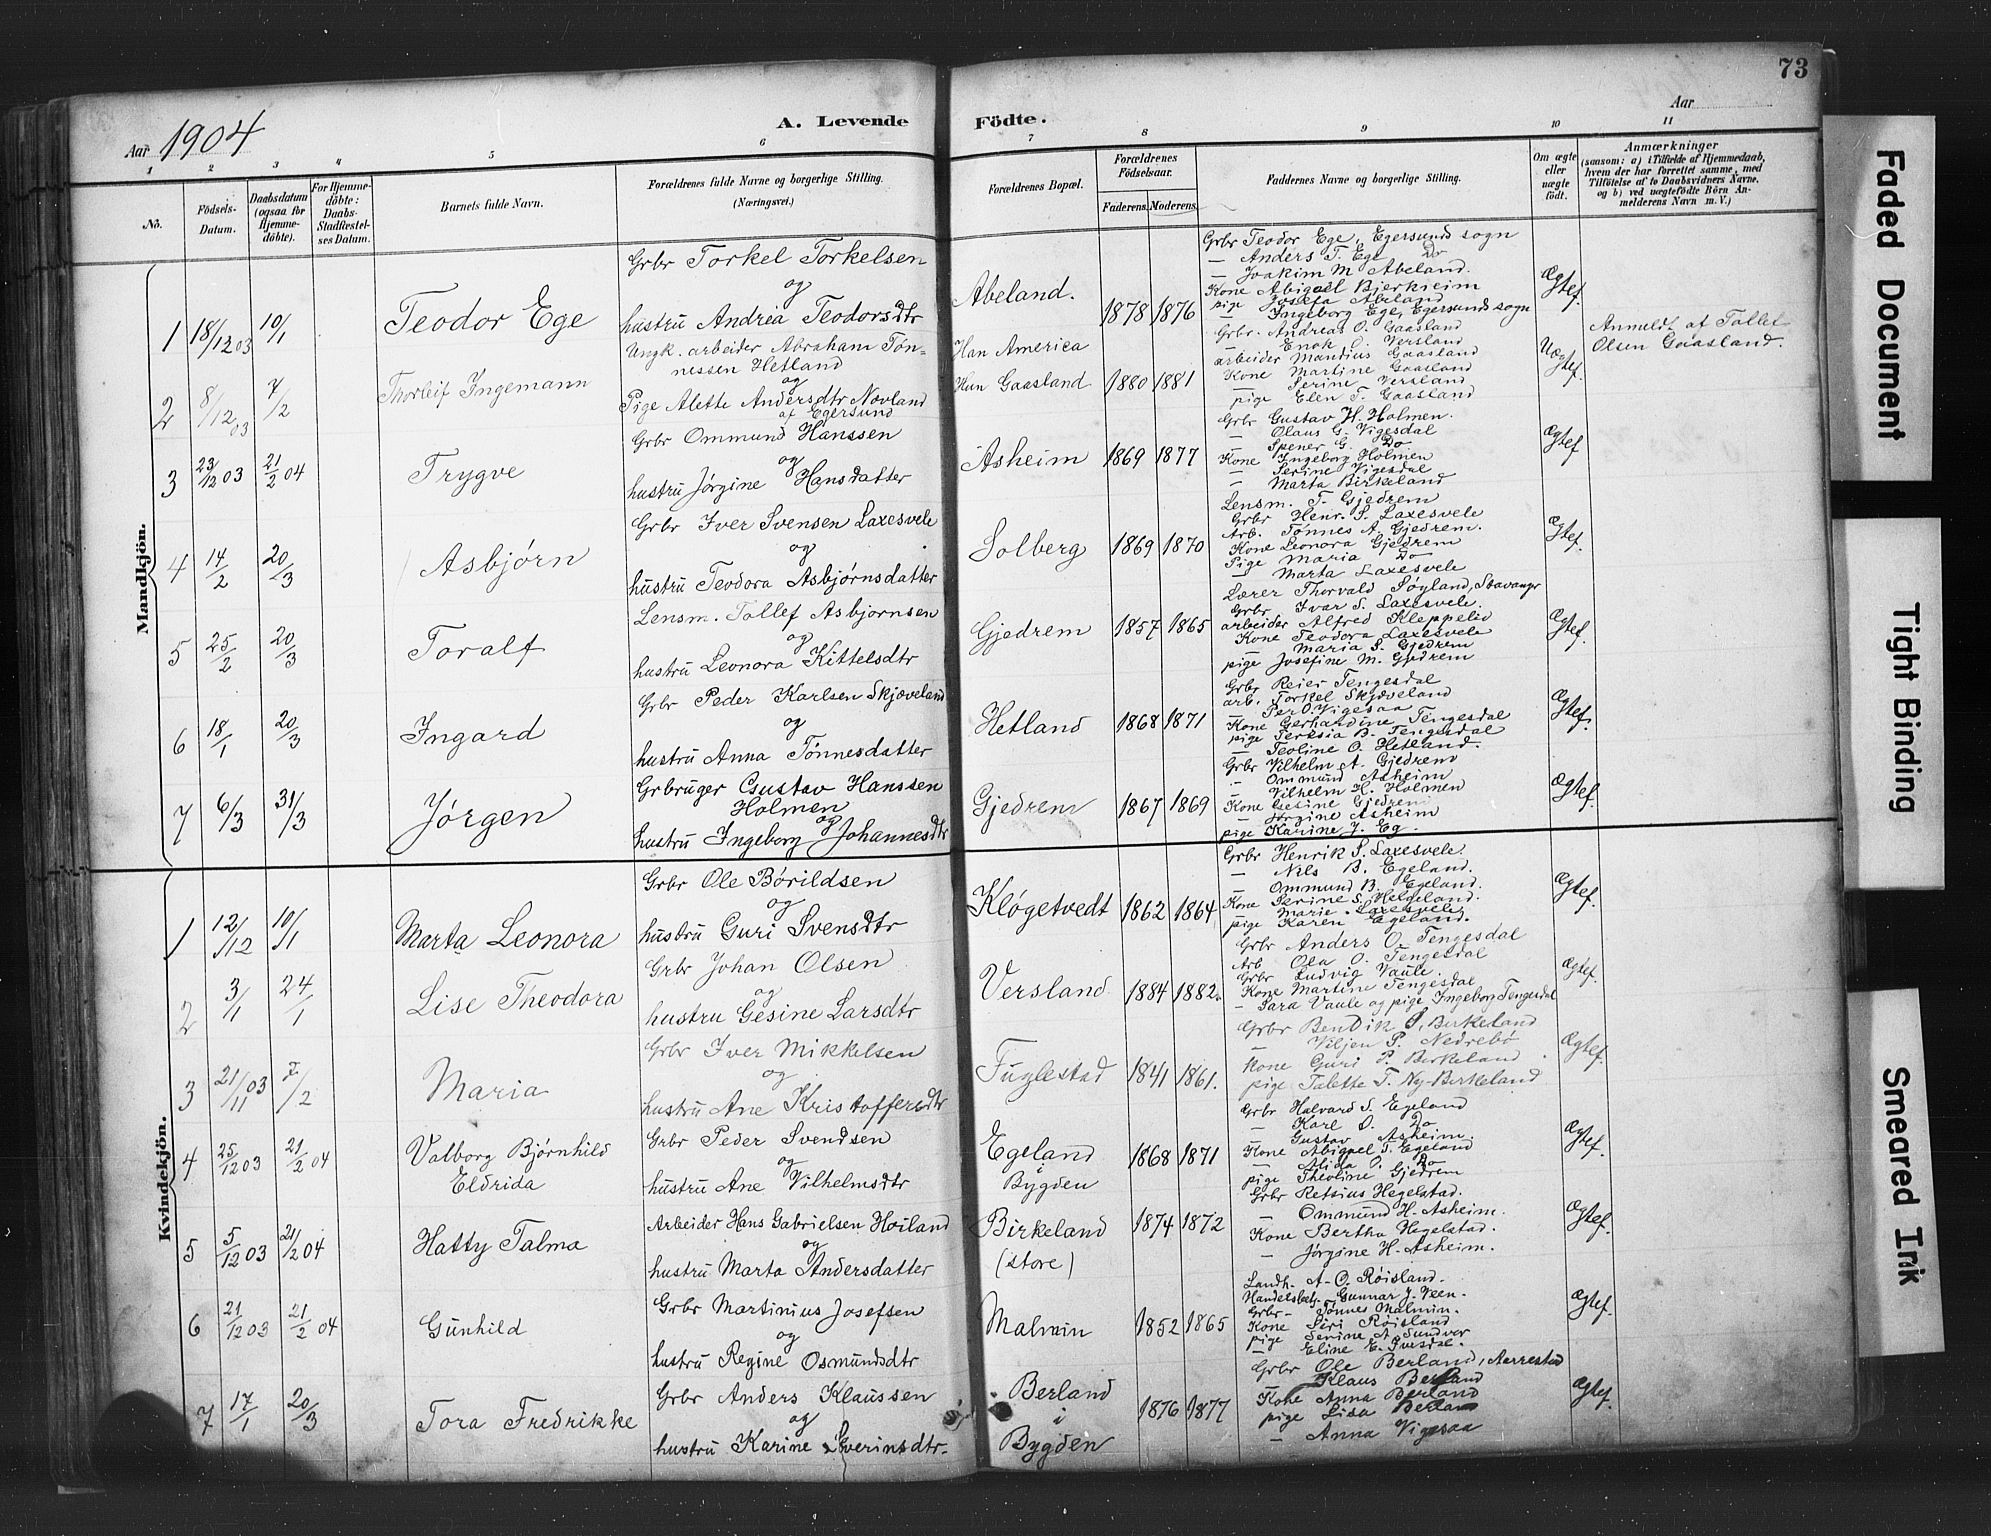 73
Aar 1904
A. Levende Födte.
Aar
1 2 3 4 5 6 7 8 9 10 11
No.
Födsels-Datum.
Daabsdatum (ogsaa for Hjemme-döbte).
For Hjemme-döbte: Daabs-Stadfæstel-ses Datum.
Barnets fulde Navn.
Forældrenes fulde Navne og borgerlige Stilling.
(Næringsvei.)
Forældrenes Bopæl.
Forældrenes Födselsaar.
Faderens. Moderens.
Faddernes Navne og borgerlige Stilling.
Om ægte eller uægte födt.
Anmærkninger
(saasom: a) i Tilfælde af Hjemmedaab, hvem der har forrettet samme, med Tilföielse af to Daabsvidners Navne, og b) ved uægtefödte Börn An-melderens Navn m. V.)
Mandkjön.
1 18/12 03 10/1
Teodor Ege
Grbr Torkel Torkelsen
og
hustru Andrea Teodorsdtr
Abeland.
1878 1876
Grbr Teodor Ege, Egersunds sogn
— Anders T. Ege Do
— Joakim M. Abeland.
Kone Abigael Bjerkreim
pige Josefa Abeland
— Ingeborg Ege, Egersunds sogn
Ægtef.
2 8/12 03 7/2
Thorleif Ingemann
Ungk. arbeider Abraham Tøn-
nessen Hetland
og
Pige Alette Andersdtr Novland
af Egersund
Han America
Hun Gaasland
1880 1881
Grbr. Andreas O. Gaasland
— Enok O. Versland
arbeider Mandius Gaasland
Kone Martine Gaasland
— Serine Versland
pige Elen T. Gaasland
Uægtef.
Anmeldt af Tollef
Olsen Gaasland.
3 23/12 03 21/2 04
Trygve
Grbr Ommund Hanssen
og
hustru Jørgine Hansdatter
Asheim
1869 1877
Grbr Gustav H. Holmen.
— Olaus G. Vigesdal
— Spener G. Do
Kone Ingeborg Holmen
— Serine Vigesdal
— Marta Birkeland
Ægtef
4 14/2 20/3
Asbjørn
Grbr Iver Svensen Laxesvele
og
hustru Teodora Asbjørnsdatter
Solberg
1869 1870
Lensm. T. Gjedrem
Grbr Henr. S. Laxesvele
Arb. Tønnes A. Gjedrem.
Kone Leonora Gjedrem
Pige Maria Do
— Marta Laxesvele
Ægtef.
5 25/2 20/3
Toralf
Lensm. Tollef Asbjørnsen
og
hustru Leonora Kittelsdtr
Gjedrem
1857 1865
Lærer Thorvald Søyland, Stavanger
Grbr Ivar S. Laxesvele.
arbeider Alfred Kleppelid
Kone Teodora Laxesvele
— Maria S. Gjedrem
pige Josefine M. Gjedrem
Ægtef.
6 18/1 20/3
Ingard
Grbr Peder Karlsen Skjæveland
og
hustru Anna Tønnesdatter
Hetland
1868 1871
Grbr Reier Tengesdal
arb. Torkel Skjæveland
— Per O. Vigesaa
Kone Gerhardine Tengesdal
pige Teresia B. Tengesdal
— Teoline O. Hetland.
Ægtef.
7 6/3 31/3
Jørgen
Grbruger Gustav Hanssen
Holmen
og
hustru Ingeborg Johannesdtr
Gjedrem
1867 1869
Grbr Vilhelm A. Gjedrem
— Ommund Asheim
— Vilhelm H. Holmen
Kone Gesine Gjedrem
— Jørgine Asheim
pige Karine J. Eg.
Ægtef.
Kvindekjön.
1 12/12 10/1
Marta Leonora
Grbr Ole Bórildsen
og
hustru Guri Svensdtr
Kløgetvedt
1862 1864
Grbr Henrik S. Laxesvele.
— Nils B. Egeland.
— Ommund B. Egeland.
Kone Serine S. Helgeland.
— Marie Laxesvele
pige Karen Egeland.
Ægtef.
2 3/1 24/1
Lise Theodora
Grbr Johan Olsen
og
hustru Gesine Larsdtr
Versland
1884 1882.
Grbr Anders O. Tengesdal
Arb Ola O. Tengesdal
Grbr Ludvig Vaule.
Kone Martine Tengesdal
— Sara Vaule og pige Ingeborg Tengesdal
Ægtef.
3 21/11 03 7/2
Maria
Grbr Iver Mikkelsen
og
hustru Ane Kristoffersdtr
Fuglestad
1841 1861.
Grbr Bendik S. Birkeland
— Viljen P. Nedrebø
Kone Guri P. Birkeland
pige Talette T. Ny-Birkeland
Ægtef.
4 25/12 03 21/2 04
Valborg Bjørnhild
Eldrida
Grbr Peder Svendsen
og
hustru Ane Vilhelmsdtr
Egeland
i
Bygden
1868 1871
Grbr Halvard S. Egeland
— Karl O. Do
— Gustav Asheim.
Kone Abigael T. Egeland
— Alida O. Do
pige Theoline Gjedrem
Ægtef.
5 5/12 03 21/2 04
Hatty Talma
Arbeider Hans Gabrielsen Hoiland
og
hustru Marta Andersdatter
Birkeland
(store)
1874 1872
Grbr Retsius Hegelstad.
— Ommund H. Asheim.
Kone Bertha Hegelstad.
— Jørgine H. Asheim.
Ægtef.
6 21/12 03 21/2 04
Gunhild
Grbr Martinius Josefsen
og
hustru Regine Osmundsdtr
Malmin
1852 1865
Landh. A. O. Røisland.
Handelsbetj. Gunnar J. Veen.
Grbr — Tønnes Malmin.
Kone Siri Røisland
pige Serine A. Sundvor
— Eline E. Ivesdal.
Ægtef.
7 17/1 20/3
Tora Fredrikke
Grbr Anders Klaussen
og
hustru Karine Severinsdtr.
Berland
i
Bygden
1876 1877
Grbr Ole Berland, Aarrestad
— Klaus Berland
Kone Anna Berland
pige Lisa Berland
— Anna Vigesaa
Ægtef.
Faded Document
Tight Binding
Smeared Ink